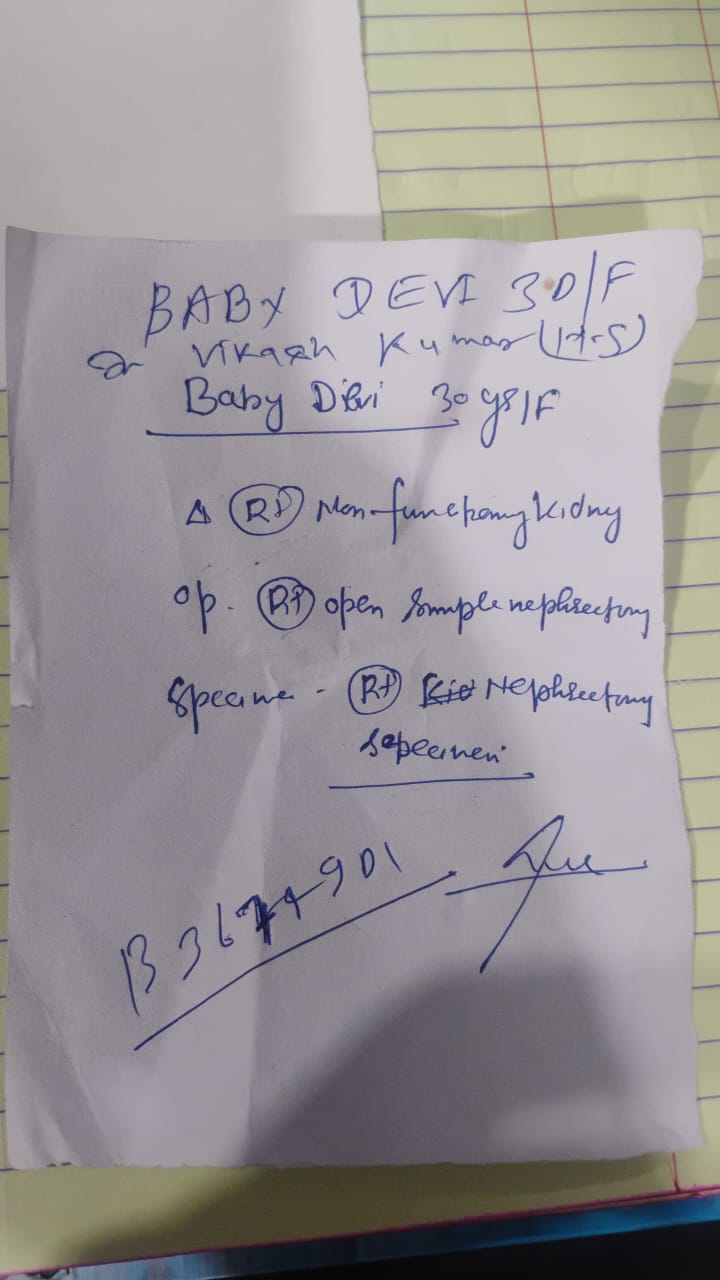 BABY DEVI 30/F
Dr Vikash Kumar (H.S)
Baby Devi 30 yrs/F
Δ Rt Non-functioning Kidney
op. Rt open Simple nephrectomy
Specimen - Rt Nephrectomy
Sepecimen